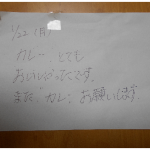 1/22 (月)
カレー とても
おいしかったです。
また カレー お願いします